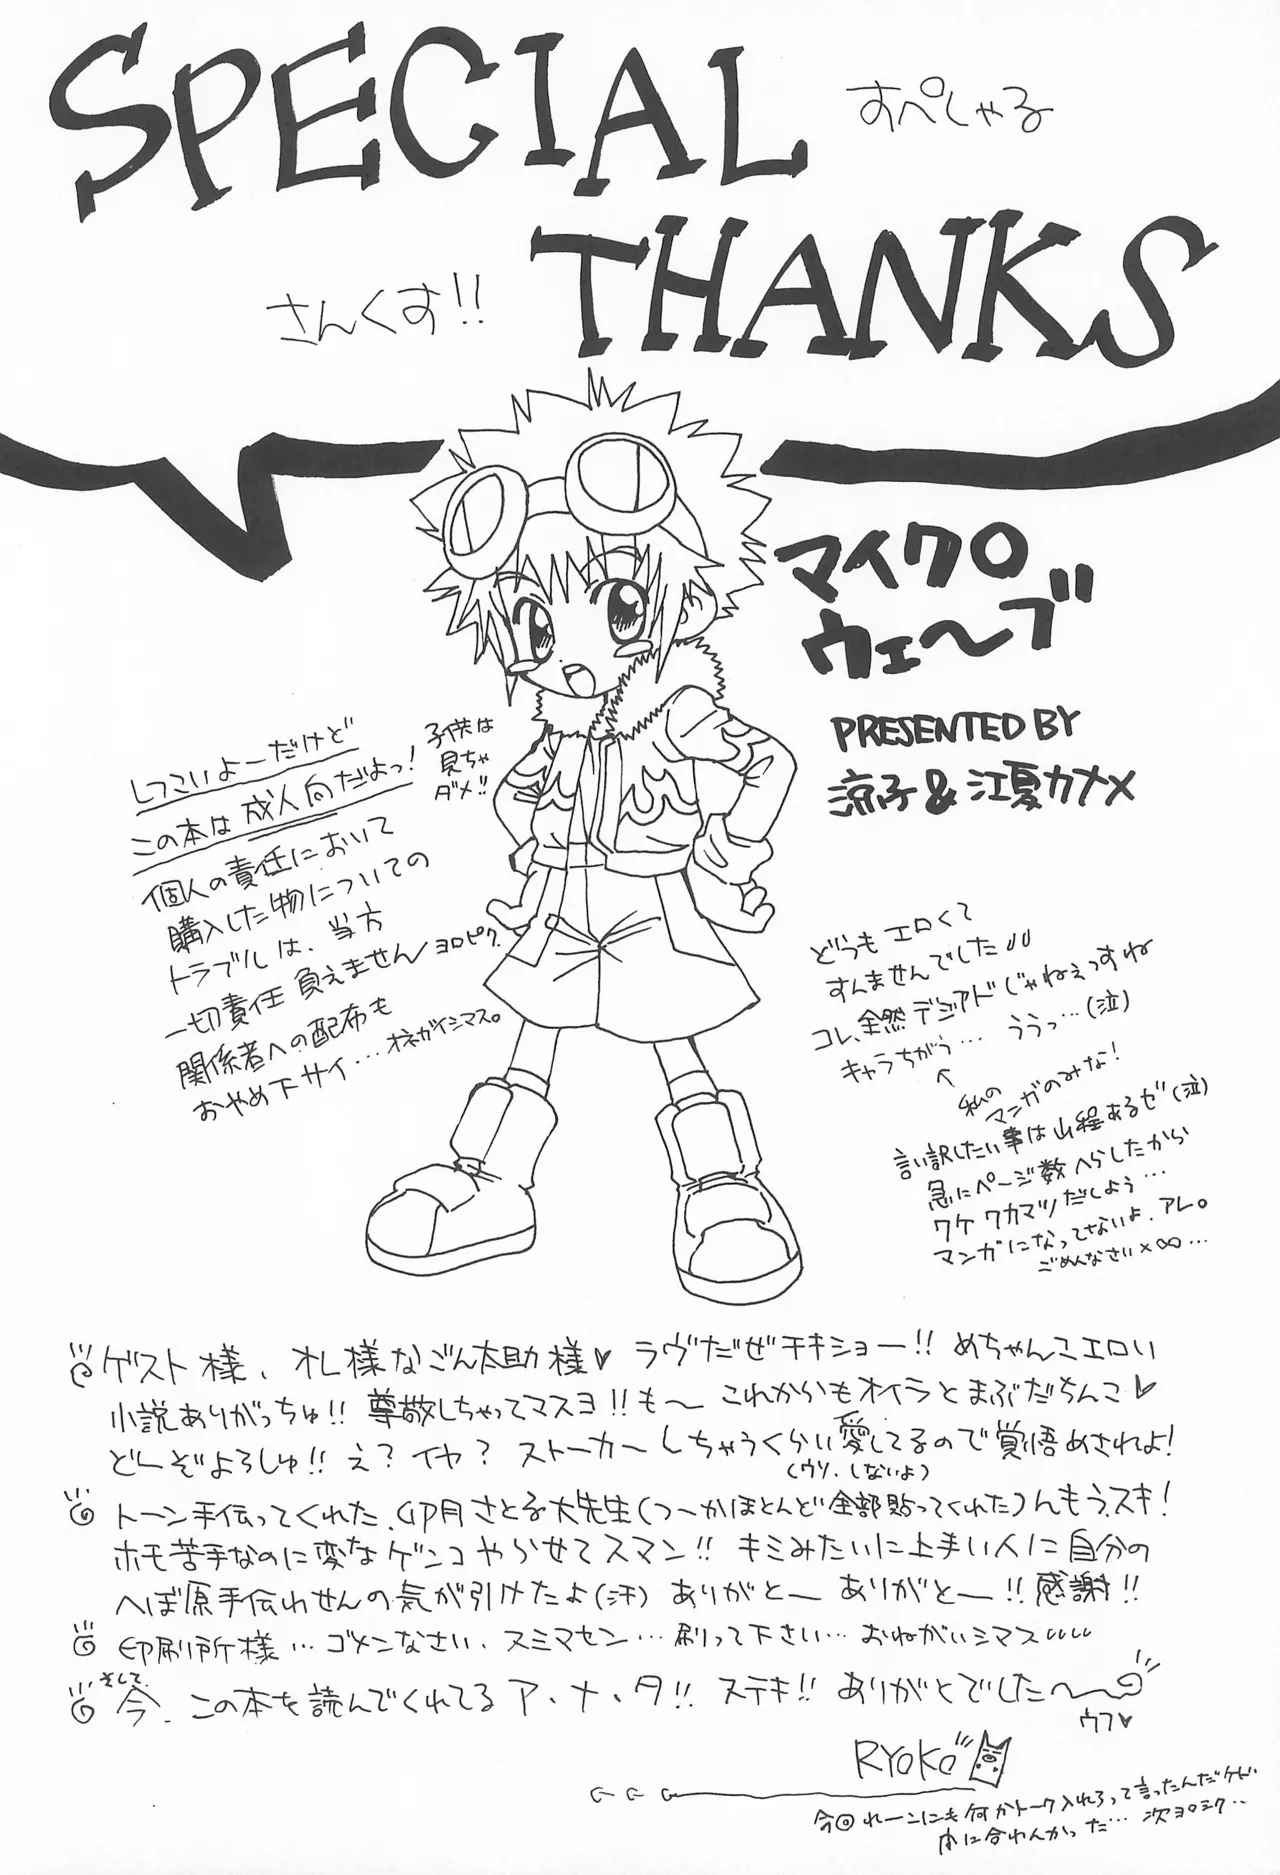 SPECIAL
すぺしゃる
THANKS
さんくす!!
マイクロ
ウェ〜ブ
PRESENTED BY
涼子 & 江夏カナメ
しつこいよーだけど
この本は成人向だよっ!
子供は
見ちゃ
ダメ!!
個人の責任において
購入した物についての
トラブルは、当方
一切責任負えません ヨロピク.
関係者への配布も
おやめ下サイ… オネガイシマス。
どうも エロくて
すんませんでした
コレ、全然 デジアドじゃねぇっすね
キャラちがう… ううっ…(泣)
私の
マンガのみな!
言い訳したい事は山程あるぜ(泣)
急にページ数へらしたから
ワケワカマツだしよう…
マンガになってないよ. アレ。
ごめんなさい×∞…
ゲスト様、オレ様なごん太助様♥ ラヴだぜチキショー!! めちゃんこエロい
小説ありがっちゅ!! 尊敬しちゃってマスヨ!! も〜 これからもオイラとまぶだちんこ♥
どーぞよろしゅ!! え? イヤ? ストーカーしちゃうくらい愛してるので覚悟めされよ!
(ウソ、しないよ)
トーン手伝ってくれた、卯月さと子大先生(つーかほとんど全部貼ってくれた)んもうスキ!
ホモ苦手なのに変なゲンコやらせてスマン!! キミみたいに上手い人に自分の
へぼ原手伝わせんの気が引けたよ(汗) ありがとー ありがとー!! 感謝!!
印刷所様… ゴメンなさい、スミマセン… 刷って下さい… おねがいシマス
そして
今、この本を読んでくれてる ア・ナ・タ!! ステキ!! ありがとでした〜
ウフ♥
RYOKO
今回れーンにも何かトーク入れろって言ったんだケド
間に合わんかった… 次ヨロシク..